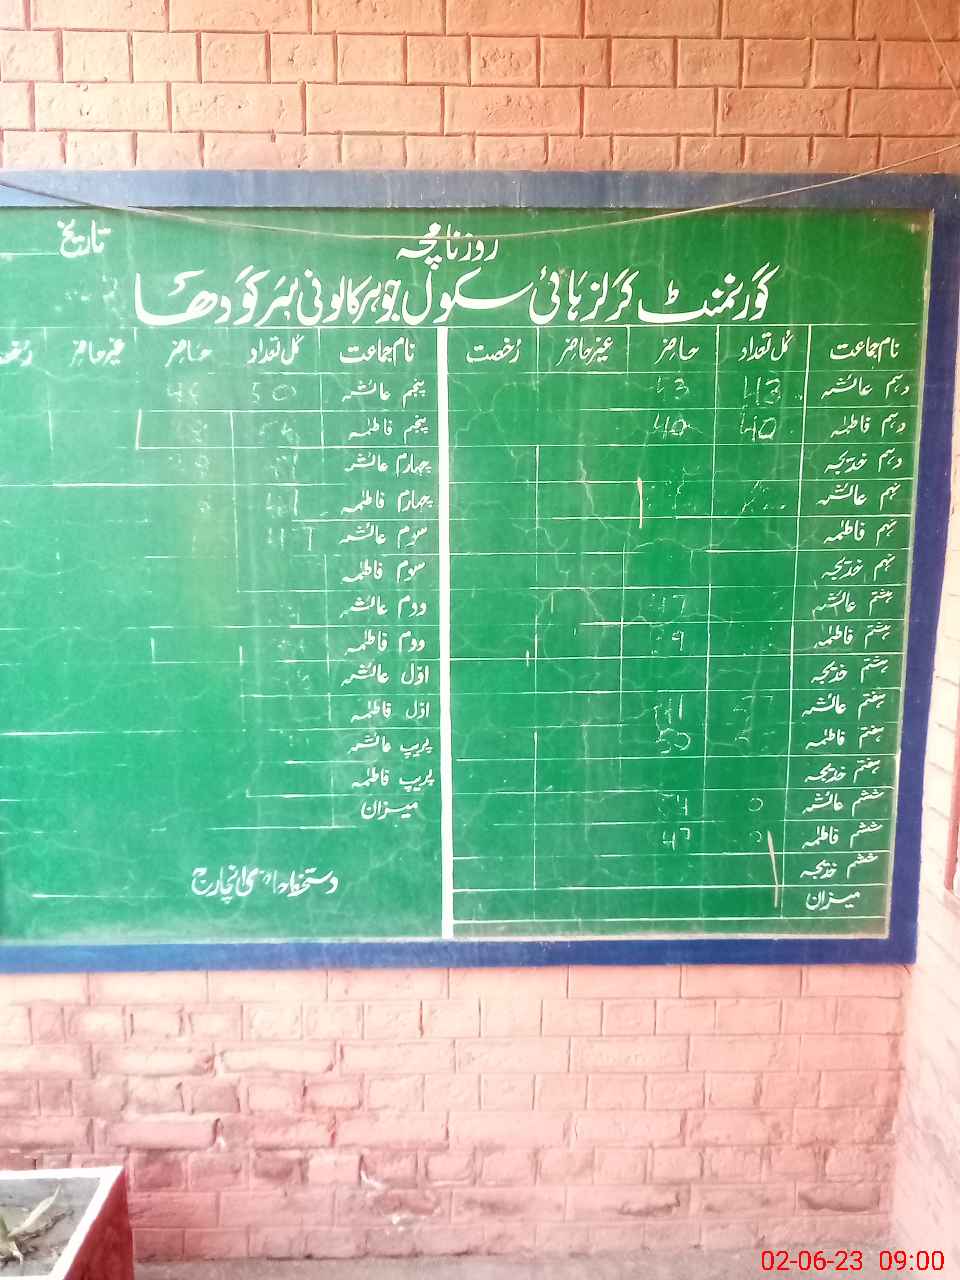 روزنامچہ
تاریخ
گورنمنٹ گرلز ہائی سکول جوہر کالونی سرگودھا
نام جماعت کل تعداد حاضر غیر حاضر رخصت
دہم عائشہ 43 43
دہم فاطمہ 40 40
دہم خدیجہ
نہم عائشہ
نہم فاطمہ
نہم خدیجہ
ہشتم عائشہ 47
ہشتم فاطمہ
ہشتم خدیجہ
ہفتم عائشہ
ہفتم فاطمہ 50
ہفتم خدیجہ
ششم عائشہ 54
ششم فاطمہ 47
ششم خدیجہ
میزان
نام جماعت کل تعداد حاضر غیر حاضر رخصت
پنجم عائشہ 50
پنجم فاطمہ
چہارم عائشہ
چہارم فاطمہ
سوم عائشہ
سوم فاطمہ
دوم عائشہ
دوم فاطمہ
اول عائشہ
اول فاطمہ
پریپ عائشہ
پریپ فاطمہ
میزان
دستخط انچارج
02-06-23 09:00